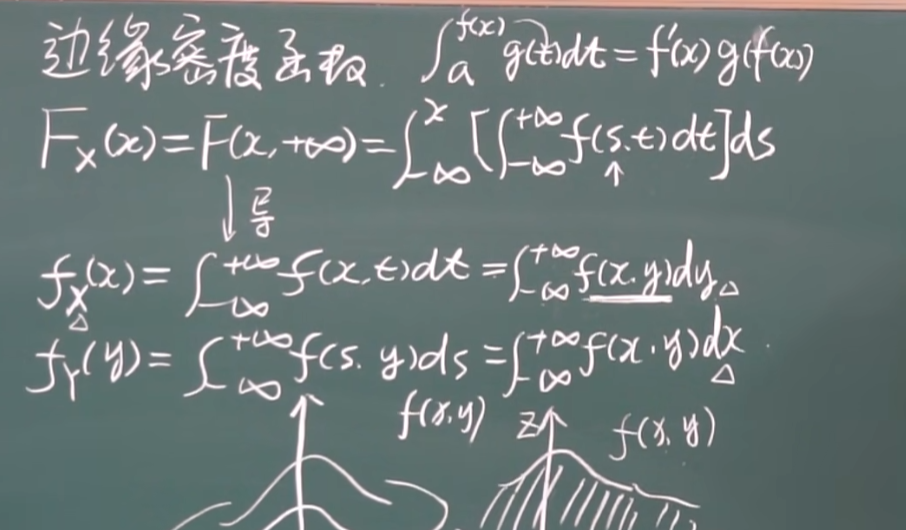 边缘密度函数. ∫_a^{f(x)} g(t)dt = f'(x) g(f(x))
F_X(x) = F(x,+∞) = ∫_{-∞}^{x} [∫_{-∞}^{+∞} f(s.t)dt]ds
↓导 ↑
f_X(x) = ∫_{-∞}^{+∞} f(x,t)dt = ∫_{-∞}^{+∞} f(x.y)dy △
△
f_Y(y) = ∫_{-∞}^{+∞} f(s.y)ds = ∫_{-∞}^{+∞} f(x.y)dx.
△
f(x,y) z f(x,y)